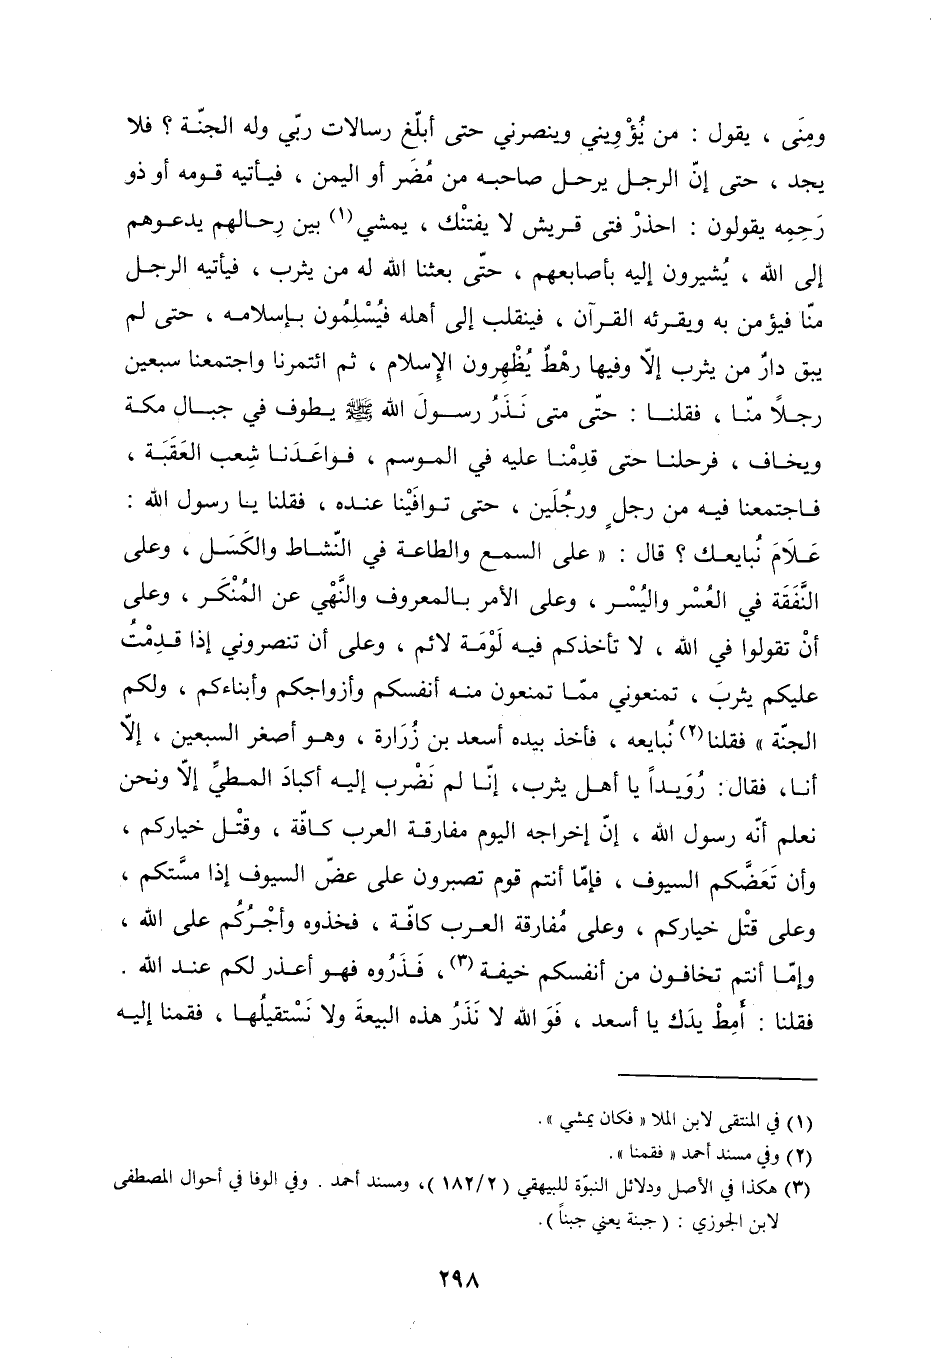 ومِنَى ، يقول : من يُؤْوِيني وينصرني حتى أبلّغ رسالات ربّي وله الجنّة ؟ فلا
يجد ، حتى إنّ الرجل يرحل صاحبه من مُضَر أو اليمن ، فيأتيه قومه أو ذو
رَحِمِه يقولون : احذرْ فتى قريش لا يفتنْك ، يمشي(١) بين رِحالهم يدعوهم
إلى الله ، يُشيرون إليه بأصابعهم ، حتّى بعثنا الله له من يثرب ، فيأتيه الرجل
منّا فيؤمن به ويقرئه القرآن ، فينقلب إلى أهله فيُسْلِمُون بإسلامه ، حتى لم
يبق دارٌ من يثرب إلّا وفيها رهْطٌ يُظْهِرون الإسلام ، ثم ائتمرنا واجتمعنا سبعين
رجلاً منّا ، فقلنا : حتّى متى نَذَرُ رسولَ الله ﷺ يطوف في جبال مكة
ويخاف ، فرحلنا حتى قدِمْنا عليه في الموسم ، فواعَدَنا شِعب العَقَبَة ،
فاجتمعنا فيه من رجلٍ ورجُلَين ، حتى توافَيْنا عنده ، فقلنا يا رسول الله :
عَلَامَ نُبايعك ؟ قال : « على السمع والطاعة في النّشاط والكَسَل ، وعلى
النَّفَقَة في العُسْر واليُسْر ، وعلى الأمر بالمعروف والنَّهْي عن المُنْكَر ، وعلى
أنْ تقولوا في الله ، لا تأخذكم فيه لَوْمَة لائم ، وعلى أن تنصروني إذا قدِمْتُ
عليكم يثربَ ، تمنعوني ممّا تمنعون منه أنفسكم وأزواجكم وأبناءكم ، ولكم
الجنّة » فقلنا(٢) نُبايعه ، فأخذ بيده أسعد بن زُرَارة ، وهو أصغر السبعين ، إلّا
أنا، فقال: رُوَيداً يا أهل يثرب، إنّا لم نَضْرب إليه أكبادَ المطيِّ إلّا ونحن
نعلم أنّه رسول الله ، إنّ إخراجه اليوم مفارقة العرب كافّة ، وقتْل خياركم ،
وأن تَعَضَّكم السيوف ، فإمّا أنتم قوم تصبرون على عضّ السيوف إذا مسَّتكم ،
وعلى قتْل خياركم ، وعلى مُفارقة العرب كافّة ، فخذوه وأجْرُكُم على الله ،
وإمّا أنتم تخافون من أنفسكم خيفة(٣) ، فَذَرُوه فهو أعذر لكم عند الله .
فقلنا : أَمِطْ يدَك يا أسعد ، فَوَ الله لا نَذَرُ هذه البيعةَ ولا نَسْتقيلُها ، فقمنا إليه
(١) في المنتقى لابن الملا « فكان يمشي » .
(٢) وفي مسند أحمد « فقمنا » .
(٣) هكذا في الأصل ودلائل النبوّة للبيهقي ( ١٨٢/٢ )، ومسند أحمد . وفي الوفا في أحوال المصطفى
لابن الجوزي : ( جبنة يعني جبناً ) .
٢٩٨